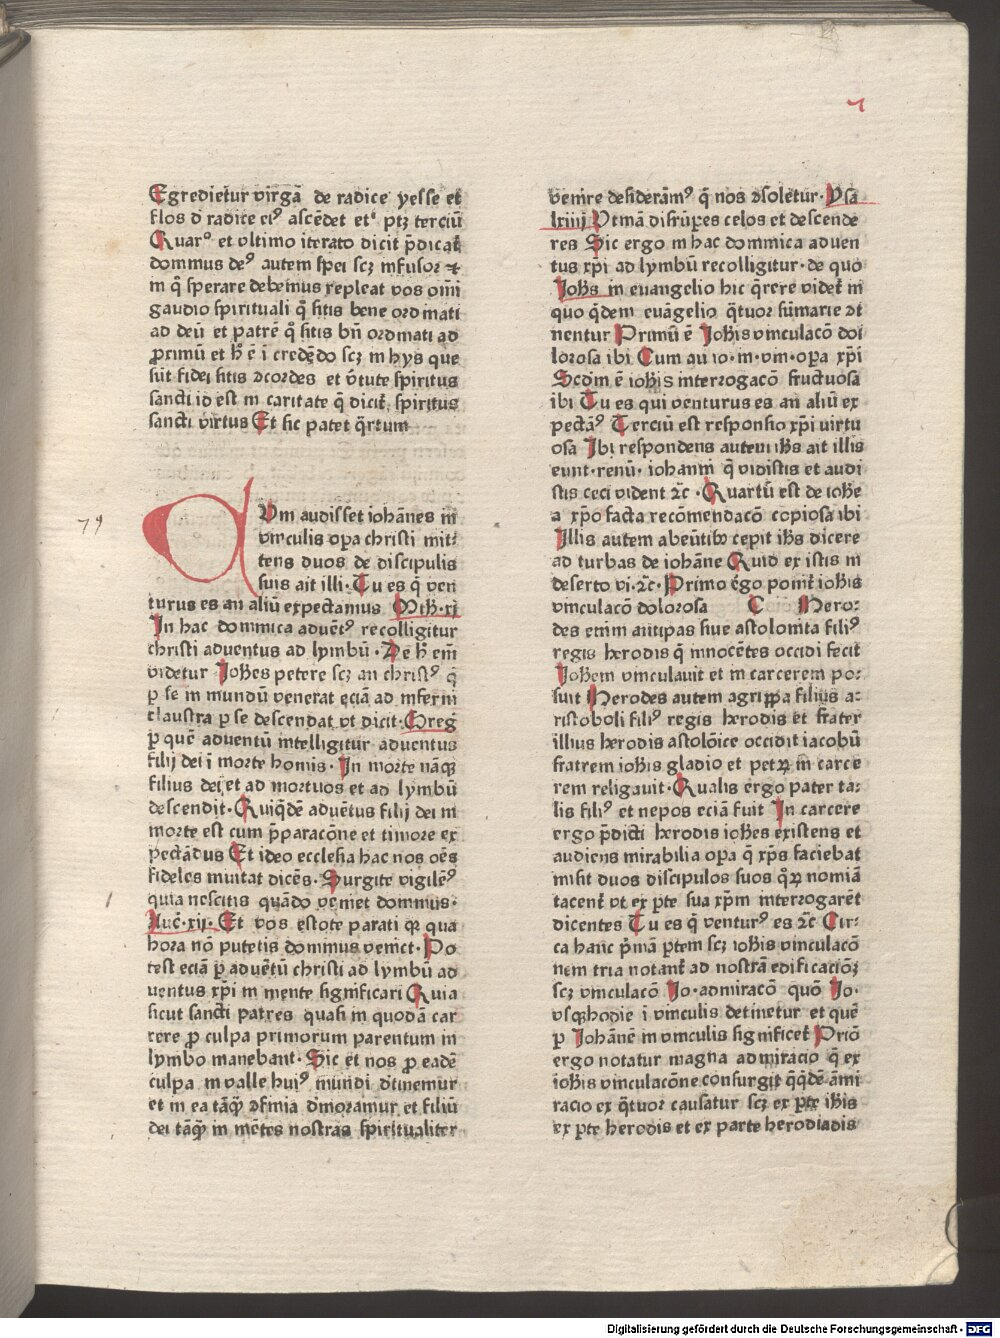 Egrediet᷑ virgā de radice yesse et
flos d̄ radice eiꝰ ascēdet etᶜ ptꝫ terciū
Quarᵒ et vltimo iterato dicit p̄dicat᷑
dominus deꝰ autem spei scꝫ infusor ⁊
in q̄ sperare debemus repleat vos om̄i
gaudio spirituali q̄ sitis bene ordinati
ad deū et patrē q̄ sitis bn̄ ordinati ad
proximū et h̄ ē ī credēdo scꝫ in hys que
sūt fidei sitis ꝯcordes et v̄tute spiritus
sancti id est in caritate q̄ dicit᷑ spiritus
sancti virtus Et sic patet q̄rtum
79
Cum audisset iohānes in
vinculis oꝑa christi mit⸗
tens duos de discipulis
suis ait illi· Tu es q̄ ven
turus es an aliū expectamus Mth̄·xi
In hac dominica aduētꝰ recolligitur
christi aduentus ad lymbū· De h̄ em̄
videtur Joh̄es petere scꝫ an christꝰ q̄
ꝑ se in mundū venerat eciā ad inferni
claustra ꝑ se descendat vt dicit· Greḡ
ꝑ quē aduentū intelligitur aduentus
filij dei ī morte homīs· In morte nāqꝫ
filius dei et ad mortuos et ad lymbū
descendit· Quiq̄dē aduētus filij dei in
morte est cum p̄paracōne et timore ex
pectādus Et ideo ecclesia hac nos oēs
fideles inuitat dicēs· Surgite vigilēꝰ
quia nescitis quādo veniet dominus·
Luc̄·xij· Et vos estote parati qꝫ qua
hora nō putetis dominus veniet· Po
test eciā ꝑ aduētū christi ad lymbū ad
uentus xp̄i in mente significari Quia
sicut sancti patres quasi in quodā car
cere ꝓ culpa primorum parentum in
lymbo manebant· Sic et nos ꝓ eadē
culpa in valle huiꝰ mundi d̄tinemur
et in ea tāqꝫ ꝯfinia d̄moramur et filiū
dei tāqꝫ in mētes nostras spiritualiter
venire desiderāmꝰ q̄ nos ꝯsoletur· Psa
lxiiij Vtinā disrūpes celos et descende
res Sic ergo in hac dominica aduen
tus xp̄i ad lymbū recolligitur· de quo
Joh̄s in euangelio hic q̄rere videt᷑ in
quo q̄dem euāgelio q̄tuor sūmarie ꝯti
nentur Primū ē Joh̄is vinculacō dol
lorosa ibi Cum au io·in·vin·oꝑa xp̄i
Scd̄m ē ioh̄is interrogacō fructuosa
ibi Tu es qui venturus es an aliū ex
pectāꝰ Terciū est responsio xp̄i virtu
osa Ibi respondens autem ih̄s ait illis
eunt·renū· iohanni q̄ vidistis et audi
stis ceci vident ⁊c̄ ·Quartū est de ioh̄e
a xp̄o facta recōmendacō copiosa ibi
Illis autem abeūtibꝰ cepit ih̄s dicere
ad turbas de iohāne Quid existis in
deserto vi·⁊c̄· Primo ēgo ponit᷑ ioh̄is
vinculacō dolorosa C Hero⸗
des enim antipas siue astolonita filiꝰ
regis herodis q̄ innocētes occidi fecit
Joh̄em vinculauit et in carcerem po⸗
suit Herodes autem agrippa filius a⸗
ristoboli filiꝰ regis herodis et frater
illius herodis astolōice occidit iacobū
fratrem ioh̄is gladio et petꝝ in carce
rem religauit· Qualis ergo pater ta⸗
lis filiꝰ et nepos eciā fuit In carcere
ergo p̄dicti herodis ioh̄es existens et
audiens mirabilia oꝑa q̄ xp̄s faciebat
misit duos discipulos suos q̄ꝝ nomiā
tacent᷑ vt ex ꝑte sua xp̄m interrogarēt
dicentes Tu es q̄ venturꝰ es ⁊c̄ Cir⸗
ca hanc p̄mā ꝑtem scꝫ ioh̄is vinculacō
nem tria notant᷑ ad nostrā edificacionꝫ
scꝫ vinculacō Io·admiracō quō Io·
vsqꝫhodie ī vinculis detinetur et quē
ꝑ Johānē in vinculis significet᷑ Priō
ergo notatur magna admiracio q̄ ex
ioh̄is vinculacōne consurgit q̄q̄dē āmi
racio ex q̄tuor causatur scꝫ ex ꝑte ih̄is
ex ꝑte herodis et ex parte herodiadis
Digitalisierung gefördert durch die Deutsche Forschungsgemeinschaft - DFG